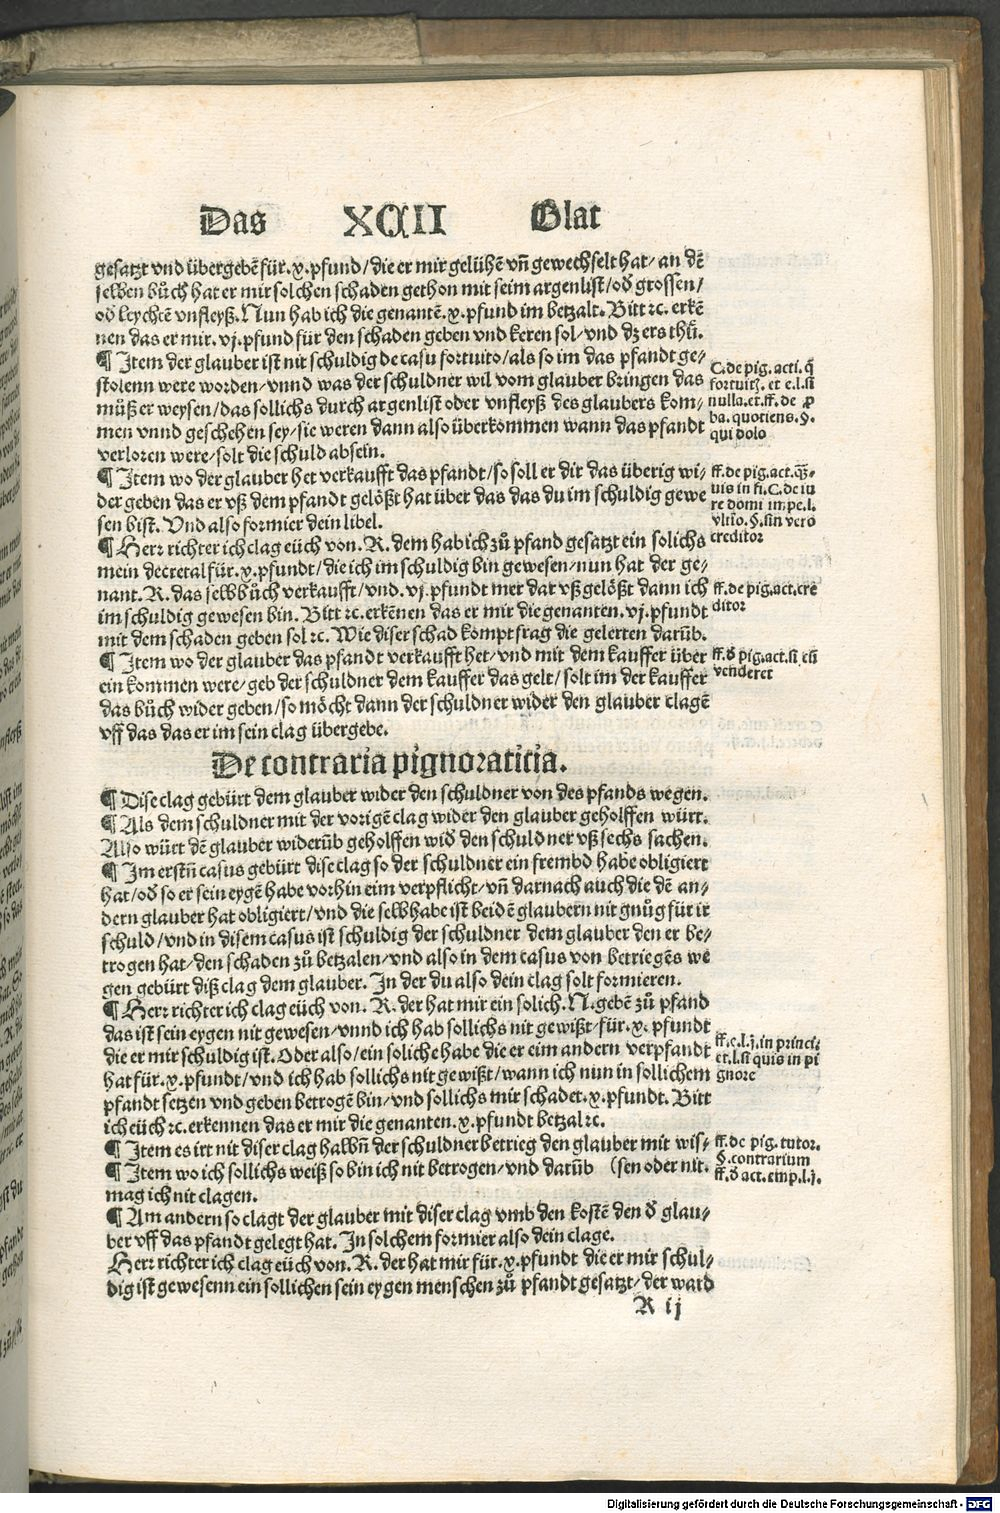 Das XCII Blat
gesatzt vnd übergebē für .x. pfund / die er mir gelühē vñ gewechselt hat / an dē
selben bůch hat er mir solchen schaden gethon mit seim argenlist / oď grossen /
oď leychtē vnfleyß. Nun hab ich die genantē .x. pfund im betzalt. Bitt ꝛc. erkē
nen das er mir .vj. pfund für den schaden geben vnd keren sol / vnd dz ers thů.
¶ Item der glauber ist nit schuldig de casu fortuito / als so im das pfandt ge⸗
stolenn were worden / vnnd was der schuldner wil vom glauber bringen das
můß er weysen / das sollichs durch argenlist oder vnfleyß des glaubers kom⸗
men vnnd geschehen sey / sie weren dann also überkommen wann das pfandt
verloren were / solt die schuld absein.
C. de pig. acti. q̄
fortuitꝭ. et e. l. si
nulla. et. ff. de ꝓ
ba. quotiens. §.
qui dolo
¶ Item wo der glauber het verkaufft das pfandt / so soll er dir das überig wi⸗
der geben das er vß dem pfandt gelößt hat über das das du im schuldig gewe
sen bist. Vnd also formier dein libel.
ff. de pig. act. q̄⸗
uis in fi. C. de iu
re domi impe. l.
vltīo. §. sin vero
creditor
¶ Herr richter ich clag eüch von. R. dem hab ich zů pfand gesatzt ein solichs
mein decretal für .x. pfundt / die ich im schuldig bin gewesen / nun hat der ge⸗
nant. R. das selb bůch verkaufft / vnd .vj. pfundt mer dar vß gelößt dann ich
im schuldig gewesen bin. Bitt ꝛc. erkēnen das er mir die genanten .vj. pfundt
mit dem schaden geben sol ꝛc. Wie diser schad kompt frag die gelerten darüb.
ff. de pig. act. cre
ditor
¶ Item wo der glauber das pfandt verkaufft het / vnd mit dem kauffer über
ein kommen were / geb der schuldner dem kauffer das gelt / solt im der kauffer
das bůch wider geben / so möcht dann der schuldner wider den glauber clagē
vff das das er im sein clag übergebe.
ff. ď pig. act. si cū
venderet
De contraria pignoraticia.
¶ Dise clag gebürt dem glauber wider den schuldner von des pfands wegen.
¶ Als dem schuldner mit der vorigē clag wider den glauber geholffen würt.
Also würt dē glauber widerūb geholffen wiď den schuldner vß sechs sachen.
¶ Im erstn̄ casus gebürt dise clag so der schuldner ein frembd habe obligiert
hat / oď so er sein eygē habe vorhin eim verpflicht / vñ darnach auch die dē an⸗
dern glauber hat obligiert / vnd die selb habe ist beidē glaubern nit gnůg für ir
schuld / vnd in disem casus ist schuldig der schuldner dem glauber den er be⸗
trogen hat / den schaden zů betzalen / vnd also in dem casus von betriegēs we
gen gebürt diß clag dem glauber. In der du also dein clag solt formieren.
¶ Herr richter ich clag eüch von. R. der hat mir ein solich. N. gebē zů pfand
das ist sein eygen nit gewesen / vnnd ich hab sollichs nit gewißt / für .x. pfundt
die er mir schuldig ist. Oder also / ein soliche habe die er eim andern verpfandt
hat für .x. pfundt / vnd ich hab sollichs nit gewißt / wann ich nun in sollichem
pfandt setzen vnd geben betrogē bin / vnd sollichs mir schadet .x. pfundt. Bitt
ich eüch ꝛc. erkennen das er mir die genanten .x. pfundt betzal ꝛc.
ff. e. l. j. in princi.
et. l. si quis in pi
gnore
¶ Item es irt nit diser clag halbn̄ der schuldner betrieg den glauber mit wis⸗
¶ Item wo ich sollichs weiß so bin ich nit betrogen / vnd darūb (sen oder nit.
mag ich nit clagen.
ff. de pig. tutor.
§. contrarium
ff. ď act. emp. l. j.
¶ Am andern so clagt der glauber mit diser clag vmb den kostē den ď glau⸗
ber vff das pfandt gelegt hat. In solchem formier also dein clage.
Herr richter ich clag eüch von. R. der hat mir für .x. pfundt die er mir schul⸗
dig ist gewesenn ein sollichen sein eygen menschen zů pfandt gesatzt / der ward
R ij
Digitalisierung gefördert durch die Deutsche Forschungsgemeinschaft - DFG